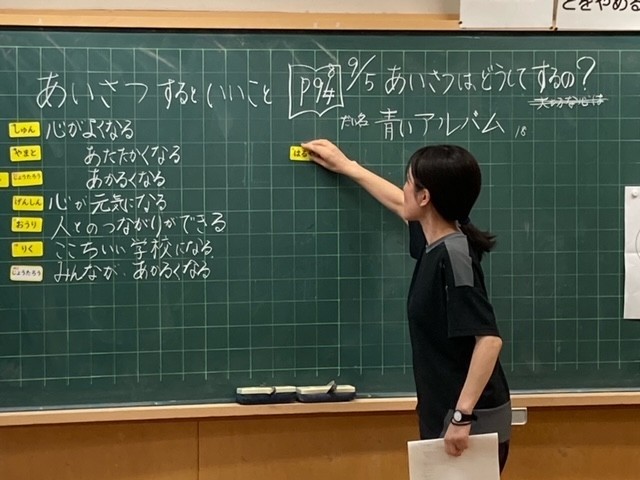 とをやめる
あいさつ するといいこと
P94 8
9/5 あいさつはどうしてするの?
だい名 青いアルバム 18
しゅん 心がよくなる
やまと あたたかくなる
じょうたろう あかるくなる
げんしん 心が元気になる
おうり 人とのつながりができる
りく ここちいい学校になる
じょうたろう みんなが あかるくなる
はる